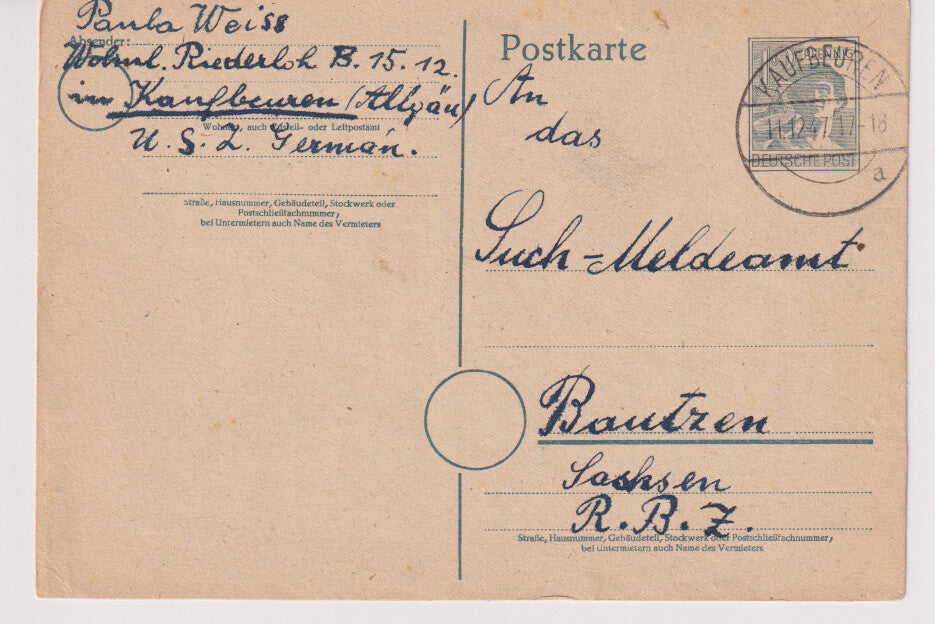 Paula Weiss
Absender:
Wohnl. Riederloh B. 15. 12.
in Kaufbeuren (Allgäu)
Wohnort, auch Zustell- oder Leitpostamt
U. S. Z. German.
Straße, Hausnummer, Gebäudeteil, Stockwerk oder
Postschließfachnummer;
bei Untermietern auch Name des Vermieters
Postkarte
An
das
Such-Meldeamt
Bautzen
Sachsen
R. B. Z.
Straße, Hausnummer, Gebäudeteil, Stockwerk oder Postschließfachnummer;
bei Untermietern auch Name des Vermieters
KAUFBEUREN
11.12.47.17-18
a
DEUTSCHE POST